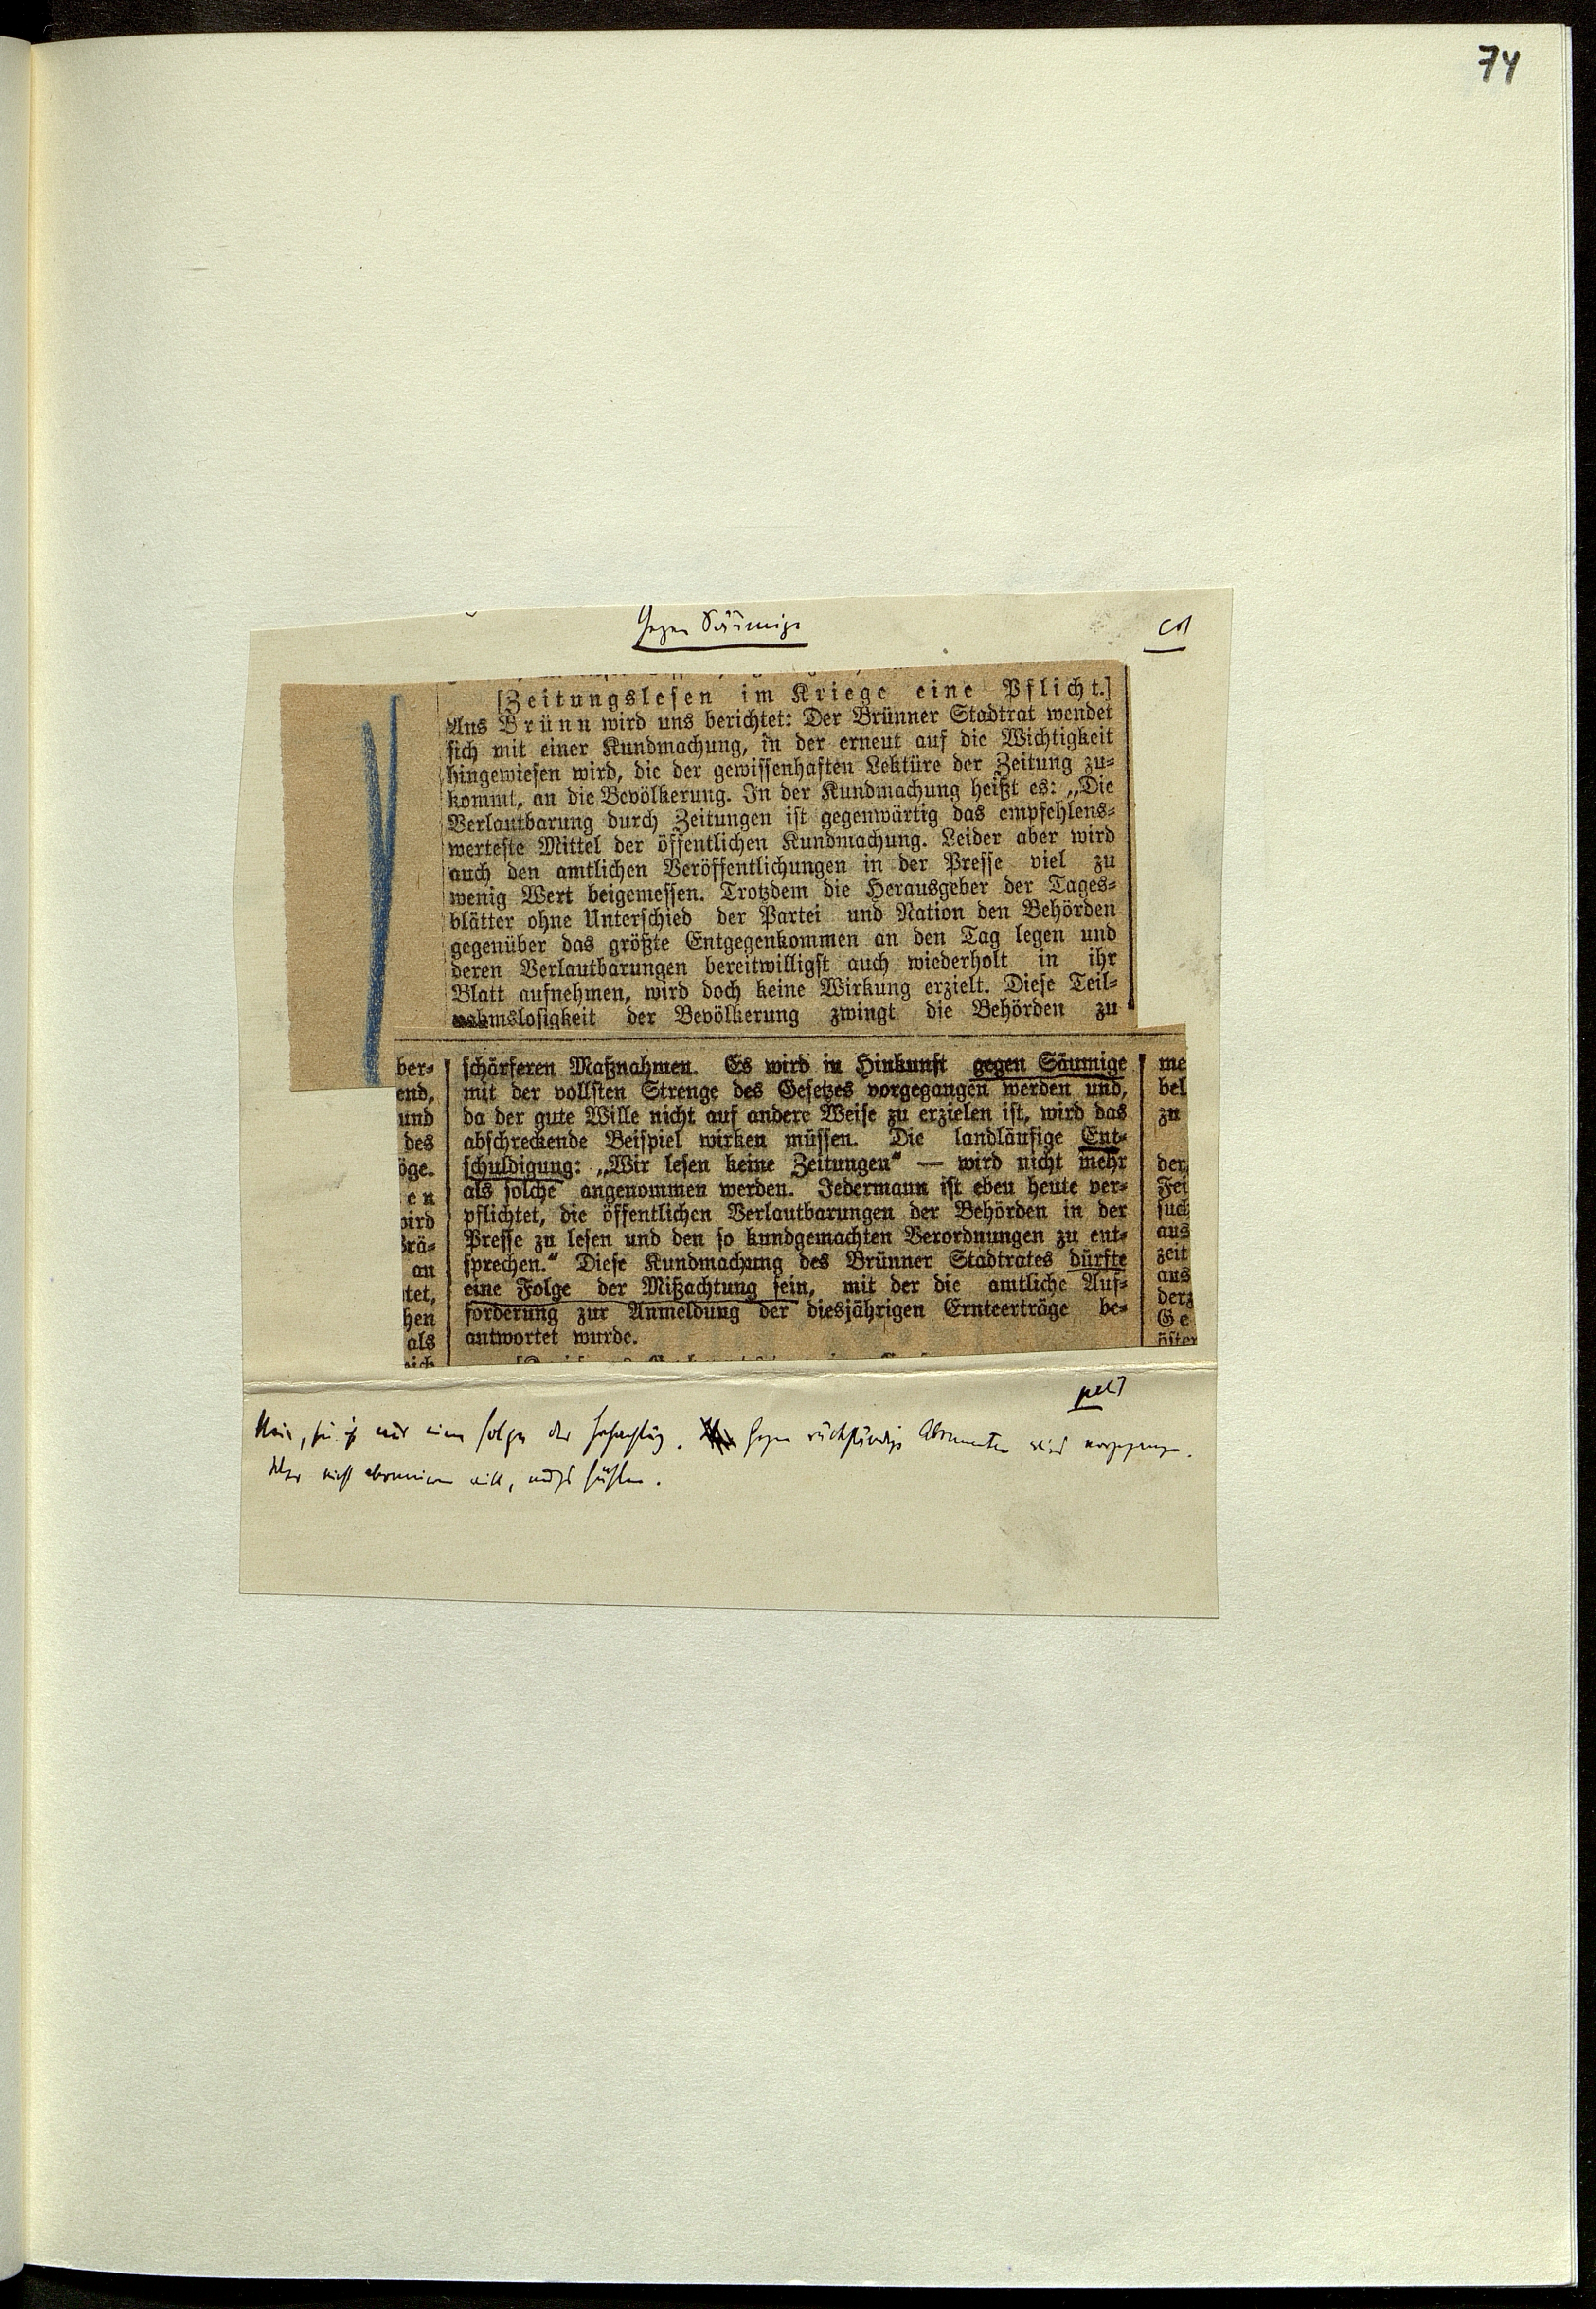 74
Gegen Säumige
[Zeitungslesen im Kriege eine Pflicht.]
Aus Brünn wird uns berichtet: Der Brünner Stadtrat wendet
sich mit einer Kundmachung, in der erneut auf die Wichtigkeit
hingewiesen wird, die der gewissenhaften Lektüre der Zeitung zu-
kommt, an die Bevölkerung. In der Kundmachung heißt es: „Die
Verlautbarung durch Zeitungen ist gegenwärtig das empfehlens-
werteste Mittel der öffentlichen Kundmachung. Leider aber wird
auch den amtlichen Veröffentlichungen in der Presse viel zu
wenig Wert beigemessen. Trotzdem die Herausgeber der Tages-
blätter ohne Unterschied der Partei und Nation den Behörden
gegenüber das größte Entgegenkommen an den Tag legen und
deren Verlautbarungen bereitwilligst auch wiederholt in ihr
Blatt aufnehmen, wird doch keine Wirkung erzielt. Diese Teil-
nahmslosigkeit der Bevölkerung zwingt die Behörden zu
schärferen Maßnahmen. Es wird in Hinkunft gegen Säumige
mit der vollsten Strenge des Gesetzes vorgegangen werden und,
da der gute Wille nicht auf andere Weise zu erzielen ist, wird das
abschreckende Beispiel wirken müssen. Die landläufige Ent-
schuldigung: „Wir lesen keine Zeitungen“ — wird nicht mehr
als solche angenommen werden. Jedermann ist eben heute ver-
pflichtet, die öffentlichen Verlautbarungen der Behörden in der
Presse zu lesen und den so kundgemachten Verordnungen zu ent-
sprechen.“ Diese Kundmachung des Brünner Stadtrates dürfte
eine Folge der Mißachtung sein, mit der die amtliche Auf-
forderung zur Anmeldung der diesjährigen Ernteerträge be-
antwortet wurde.
ber-
end,
und
des
öge.
en
wird
Brä-
an
tet,
hen
als
me
bel
zu
der
Fei
such
aus
zeit
aus
derz
Ge
öster
Nein, sie ist nur eine Folge der Hochachtung. Gegen rückständige Abonnenten wird vorgegangen.
Wer nicht abonnieren will, muß fühlen.